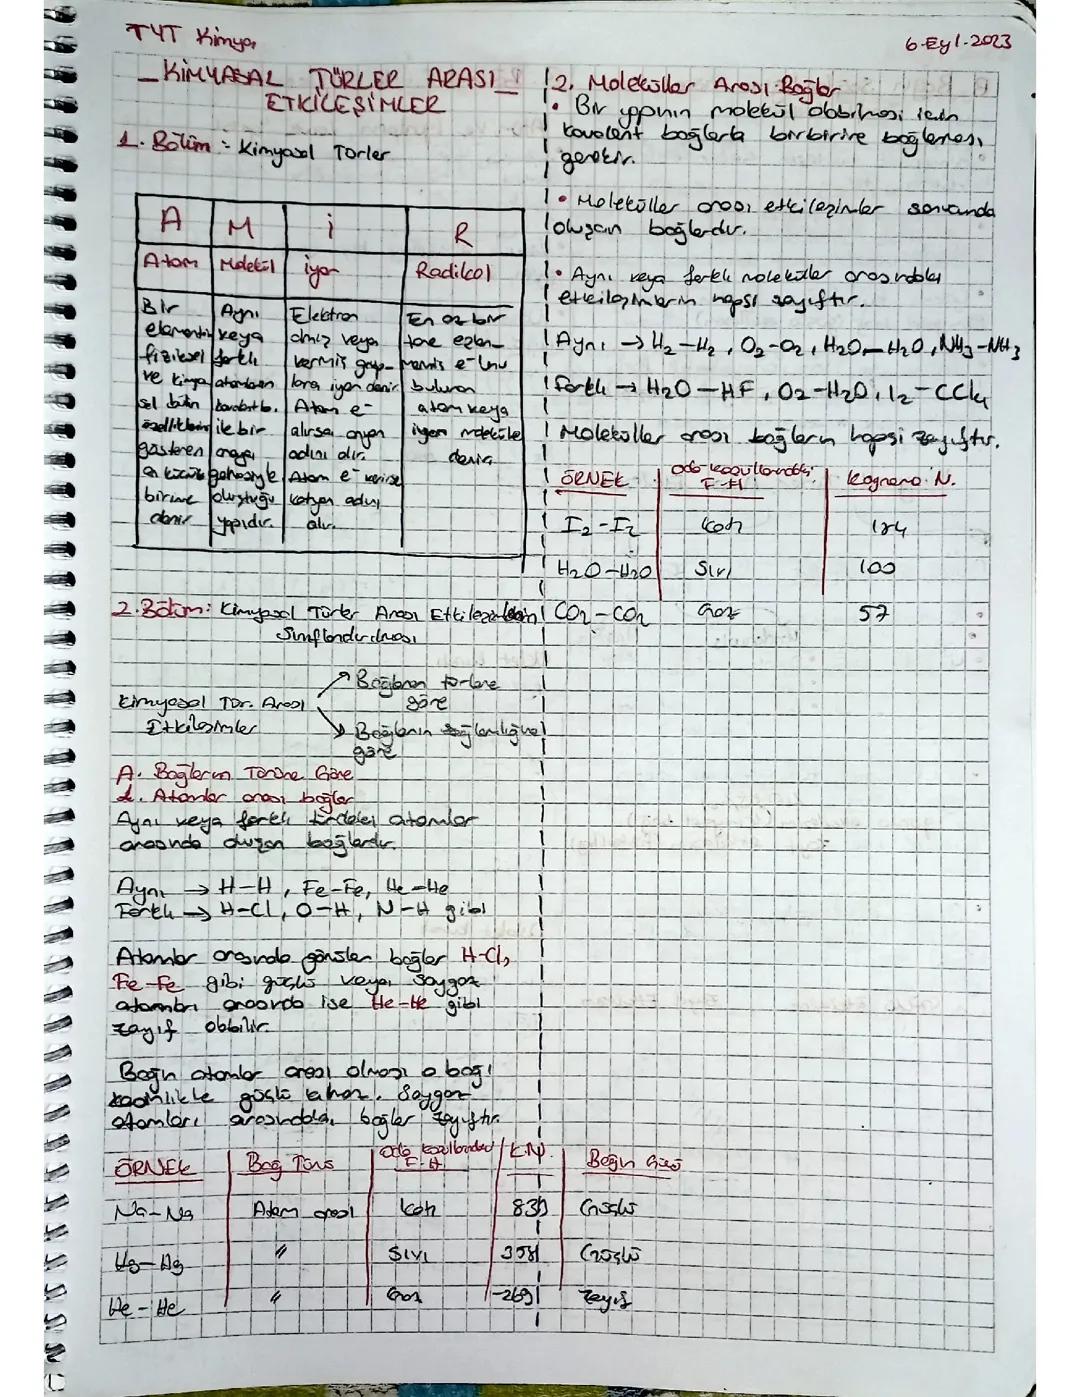 TYT Kimya
6-Eyl-2023
KİMYASAL TÜRLER ARASI
ETKİLEŞİMLER
1. Bölüm: Kimyasal Türler
A M İ R
Atom Molekül iyon Radikal
Bir
elementin
fiziksel
ve kimya
sel bütün
özelliklerini
gösteren
en küçük
birime
denir
Aynı
veya
farklı
atomların
ile bir
araya
oluştuğu
yapıdır.
Elektron
almış veya
vermiş grup-
lara iyon denir
Atom e-
alırsa anyon
adını alır.
Atom e- verirse
katyon adını
alır.
En az bir
tane eşlen-
memiş e-'nu
bulunan
atom veya
iyon moleküle
denir
2. Bölüm: Kimyasal Türler Arası Etkileşimlerin
Sınıflandırılması
Kimyasal Tür. Arası
Etkileşimler
Bağlanan türlere
göre
Bağların sağlamlığına
göre
A. Bağların Türüne Göre
1. Atomlar arası bağlar
Aynı veya farklı türdeki atomlar
arasında oluşan bağlardır.
Aynı → H-H, Fe-Fe, He-He
Farklı → H-Cl, O-H, N-H gibi
Atomlar arasında görülen bağlar H-Cl,
Fe-Fe gibi güçlü veya soygaz
atomları arasında ise He-He gibi
zayıf olabilir.
Bağın atomlar arası olması o bağı
kesinlikle güçlü kılmaz. Soygaz
atomları arasındaki bağlar zayıftır.
ÖRNEK Bağ Türü Oda koşullarındaki F.H K.N. Bağın Gücü
Na-Na Atom arası Katı 839 Güçlü
Hg-Hg " Sıvı 358 Güçlü
He-He " Gaz -269 Zayıf
2. Moleküller Arası Bağlar
• Bir yapının molekül olabilmesi için
kovalent bağlarla birbirine bağlanması
gerekir.
• Moleküller arası etkileşimler sonucunda
oluşan bağlardır.
• Aynı veya farklı moleküller arasındaki
etkileşimlerin hepsi zayıftır.
Aynı → H2-H2, O2-O2, H2O-H2O, NH3-NH3
Farklı → H2O-HF, O2-H2O, I2-CCl4
Moleküller arası bağların hepsi zayıftır.
ÖRNEK Oda koşullarındaki F-H Kaynama N.
I2-I2 Katı 184
H2O-H2O Sıvı 100
CO2-CO2 Gaz 57